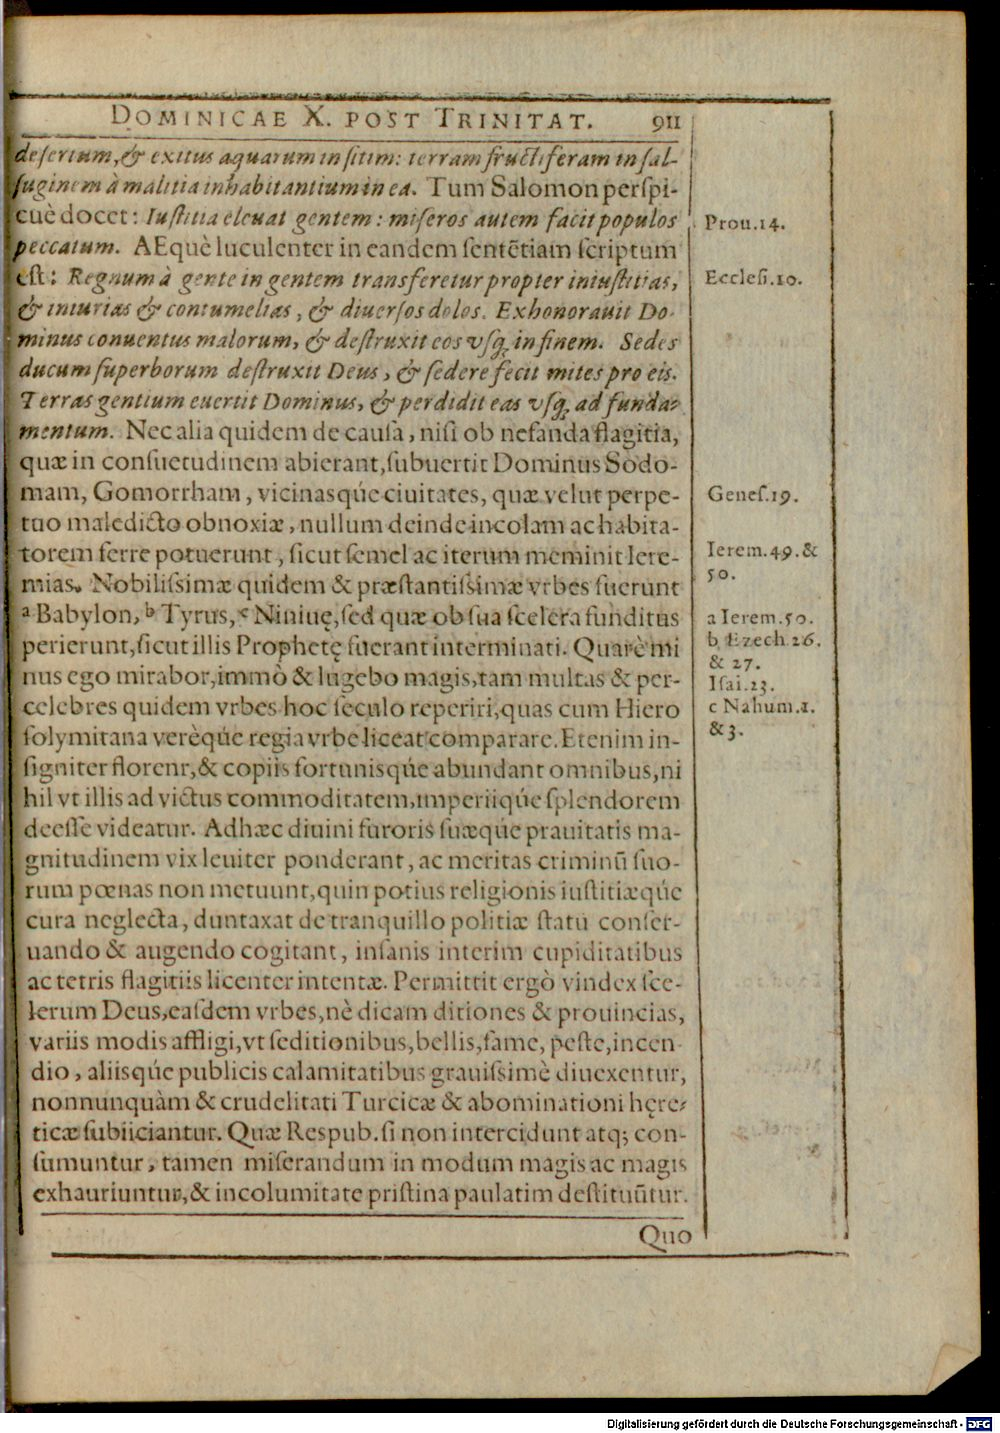 DOMINICAE X. POST TRINITAT. 911
deſertum, & exitus aquarum in ſitim: terram fructiferam in ſal-
ſuginem à malitia inhabitantium in ea. Tum Salomon perſpi-
cuè docet: Iuſtitia eleuat gentem: miſeros autem facit populos
peccatum. AEquè luculenter in eandem ſentẽtiam ſcriptum
eſt: Regnum à gente in gentem transferetur propter iniuſtitias,
& iniurias & contumelias, & diuerſos dolos. Exhonorauit Do-
minus conuentus malorum, & deſtruxit eos vſq; in finem. Sedes
ducum ſuperborum deſtruxit Deus, & ſedere fecit mites pro eis.
Terras gentium euertit Dominus, & perdidit eas vſq; ad funda-
mentum. Nec alia quidem de cauſa, niſi ob nefanda flagitia,
quæ in conſuetudinem abierant, ſubuertit Dominus Sodo-
mam, Gomorrham, vicinasqúe ciuitates, quæ velut perpe-
tuo maledicto obnoxiæ, nullum deinde incolam ac habita-
torem ferre potuerunt, ſicut ſemel ac iterum meminit Iere-
mias. Nobiliſsimæ quidem & præſtantiſsimæ vrbes fuerunt
a Babylon, b Tyrus, c Niniuę, ſed quæ ob ſua ſcelera funditus
perierunt, ſicut illis Prophetę fuerant interminati. Quarè mi
nus ego mirabor, immò & lugebo magis, tam multas & per-
celebres quidem vrbes hoc ſeculo reperiri, quas cum Hiero
ſolymitana verèqúe regia vrbe liceat comparare. Etenim in-
ſigniter florent, & copiis fortunisqúe abundant omnibus, ni
hil vt illis ad victus commoditatem, imperiiqúe ſplendorem
deeſſe videatur. Adhæc diuini furoris ſuæqúe prauitatis ma-
gnitudinem vix leuiter ponderant, ac meritas criminũ ſuo-
rum pœnas non metuunt, quin potius religionis iuſtitiæqúe
cura neglecta, duntaxat de tranquillo politiæ ſtatu conſer-
uando & augendo cogitant, inſanis interim cupiditatibus
ac tetris flagitiis licenter intentæ. Permittit ergò vindex ſce-
lerum Deus, eaſdem vrbes, nè dicam ditiones & prouincias,
variis modis affligi, vt ſeditionibus, bellis, fame, peſte, incen
dio, aliisqúe publicis calamitatibus grauiſsimè diuexentur,
nonnunquàm & crudelitati Turcicæ & abominationi hęre-
ticæ ſubiiciantur. Quæ Reſpub. ſi non intercidunt atq; con-
ſumuntur, tamen miſerandum in modum magis ac magis
exhauriuntur, & incolumitate priſtina paulatim deſtituũtur.
Quo
Prou.14.
Eccleſi.10.
Geneſ.19.
Ierem.49.&
50.
a Ierem.50.
b Ezech.26.
& 27.
Iſai.23.
c Nahum.1.
&3.
Digitalisierung gefördert durch die Deutsche Forschungsgemeinschaft - DFG